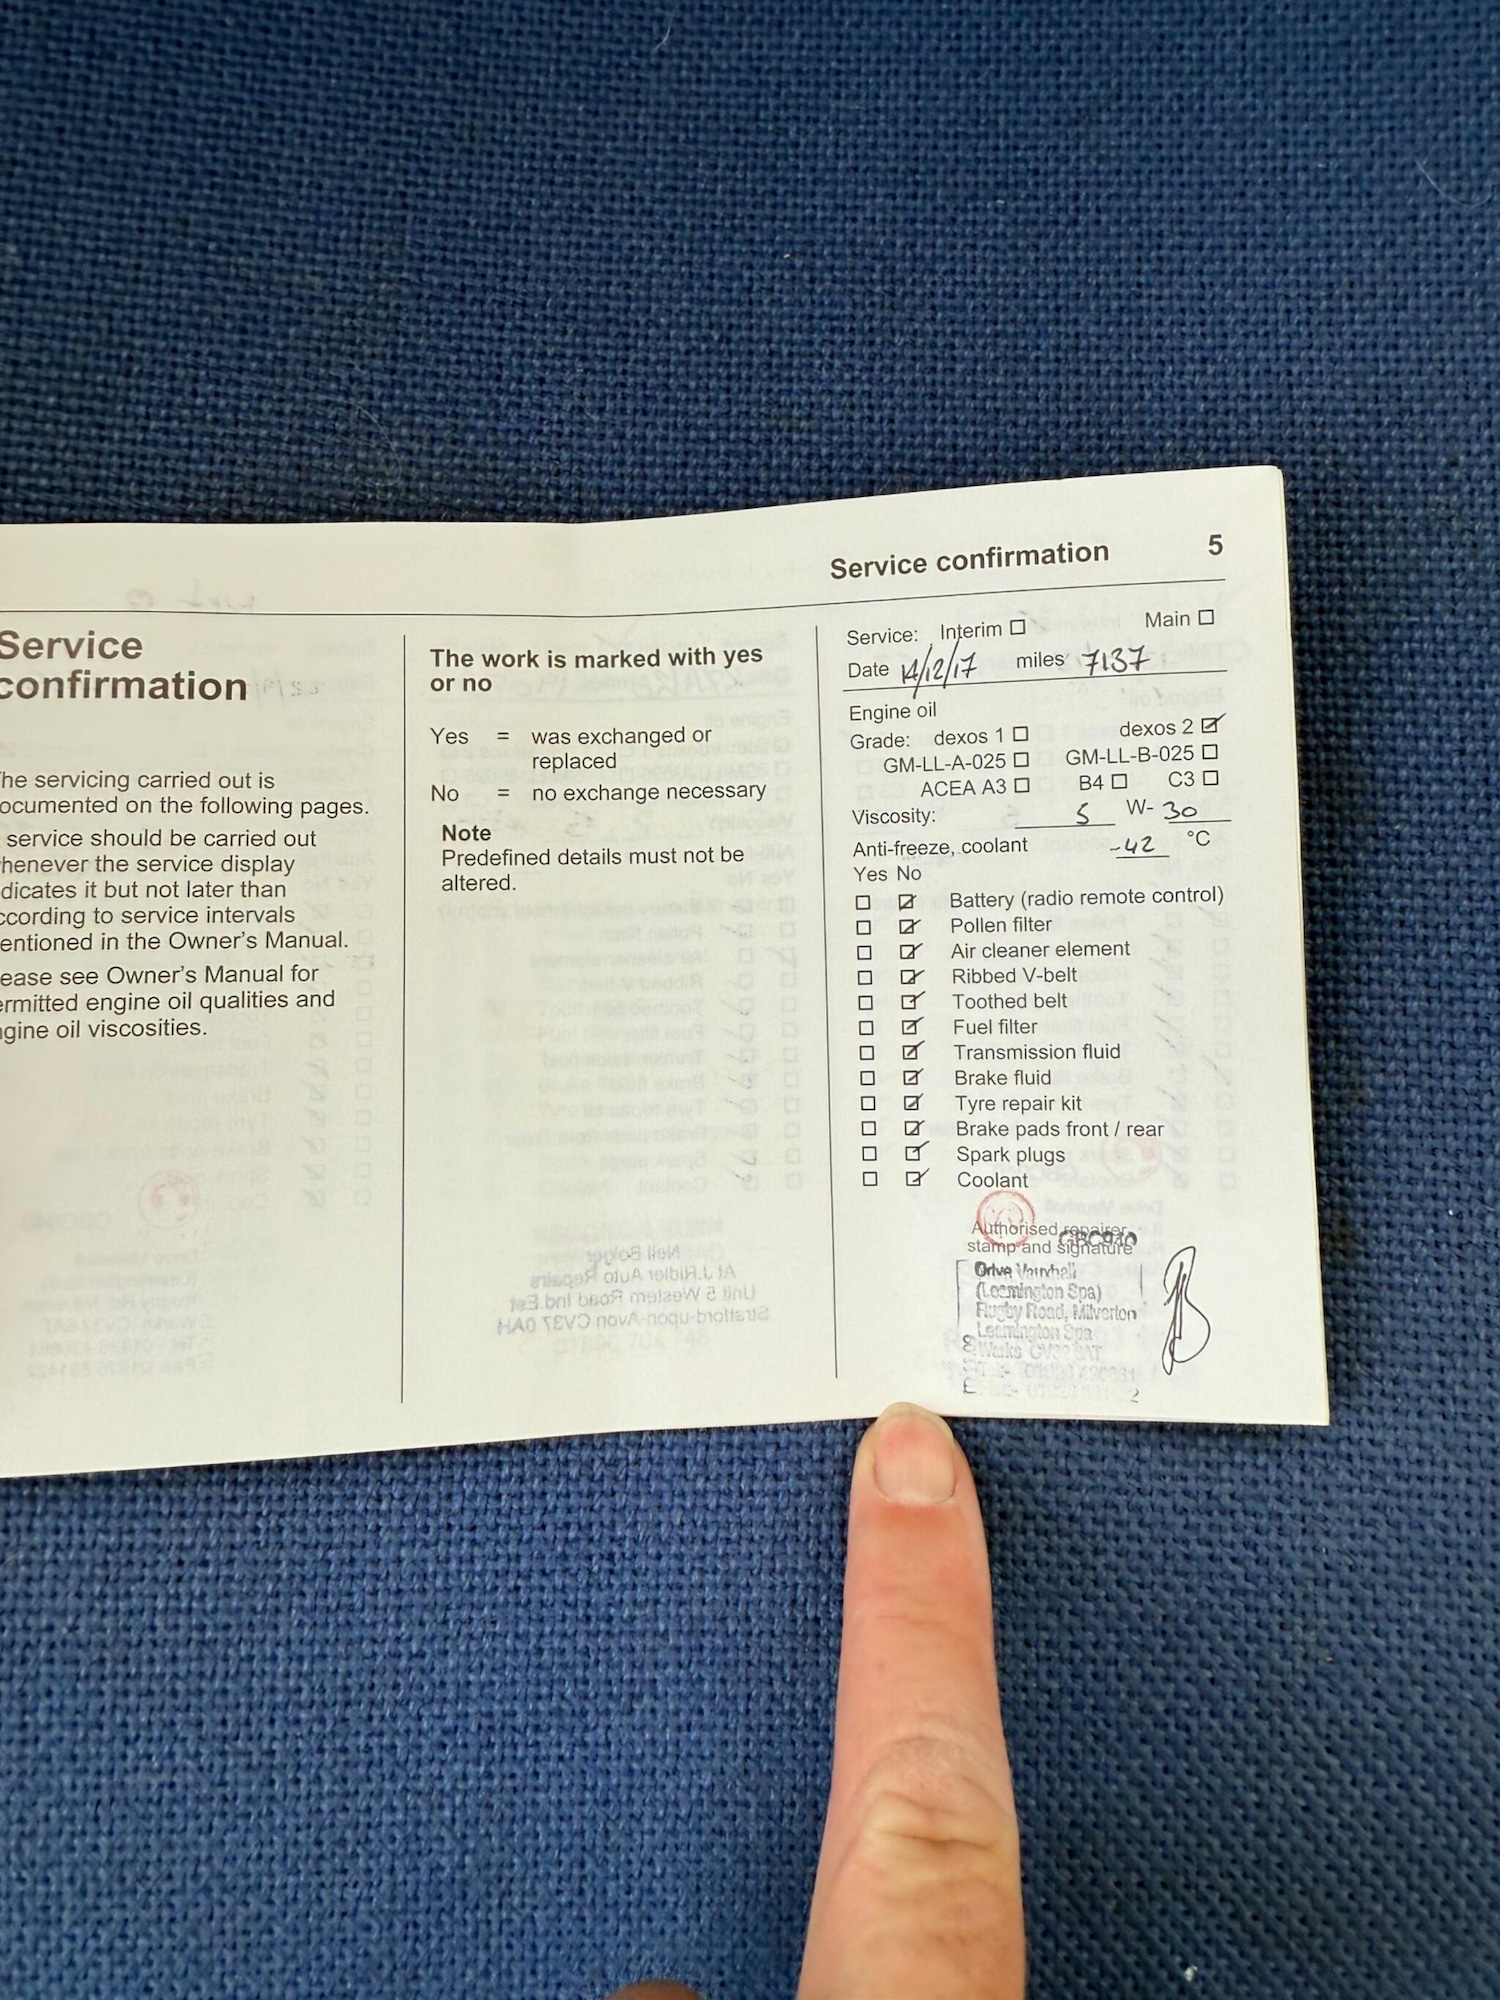 Service confirmation 5
Service
confirmation
he servicing carried out is
ocumented on the following pages.
service should be carried out
henever the service display
dicates it but not later than
ccording to service intervals
entioned in the Owner's Manual.
ease see Owner's Manual for
ermitted engine oil qualities and
ngine oil viscosities.
The work is marked with yes
or no
Yes = was exchanged or
replaced
No = no exchange necessary
Note
Predefined details must not be
altered.
Service: Interim Main
Date 14/12/17 miles 7137
Engine oil
Grade: dexos 1 dexos 2
GM-LL-A-025 GM-LL-B-025
ACEA A3 B4 C3
Viscosity: 5 W- 30
Anti-freeze, coolant -42 °C
Yes No
Battery (radio remote control)
Pollen filter
Air cleaner element
Ribbed V-belt
Toothed belt
Fuel filter
Transmission fluid
Brake fluid
Tyre repair kit
Brake pads front / rear
Spark plugs
Coolant
Authorised repairer
stamp and signature
Drive Vauxhall
(Leamington Spa)
Rugby Road, Milverton
Leamington Spa